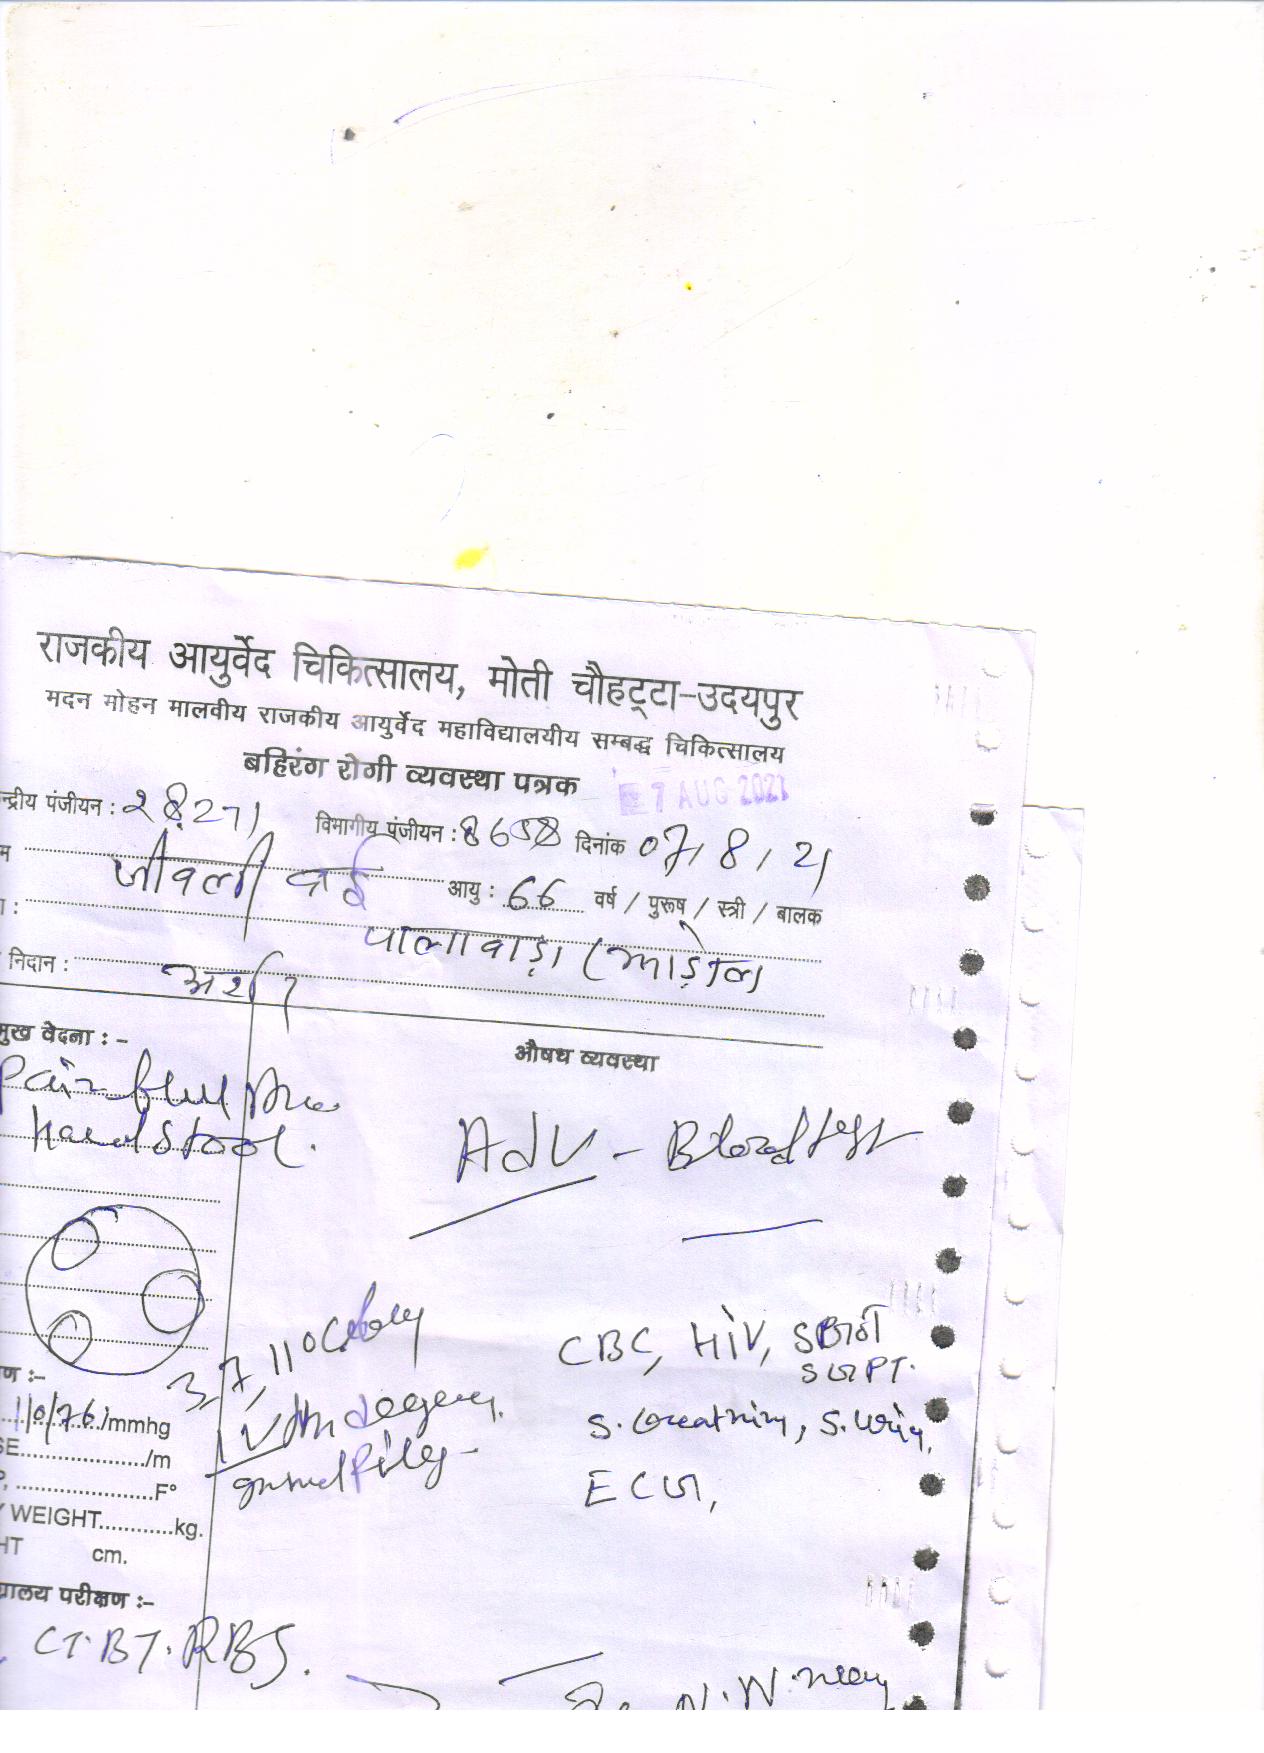 राजकीय आयुर्वेद चिकित्सालय, मोती चौहट्टा-उदयपुर
मदन मोहन मालवीय राजकीय आयुर्वेद महाविद्यालयीय सम्बद्ध चिकित्सालय
बहिरंग रोगी व्यवस्था पत्रक
7 AUG 2021
न्द्रीय पंजीयन : २8271 विभागीय पंजीयन : 8658 दिनांक 07/8/21
म जीवली बाई आयु : 66 वर्ष / पुरूष / स्त्री / बालक
: पालावाड़ा (झाड़ोल)
निदान : अर्श
मुख वेदना : - औषध व्यवस्था
Pain
hard stool.
Adv - Blood test
3, 7, 11 O'clock
CBC, HIV, SGOT
SGPT.
110/76 /mmhg
S. Creatnin, S. Uria,
SE /m
Piles
, F°
ECG,
WEIGHT kg.
HT cm.
ालय परीक्षण :-
CT. BT. RBS.